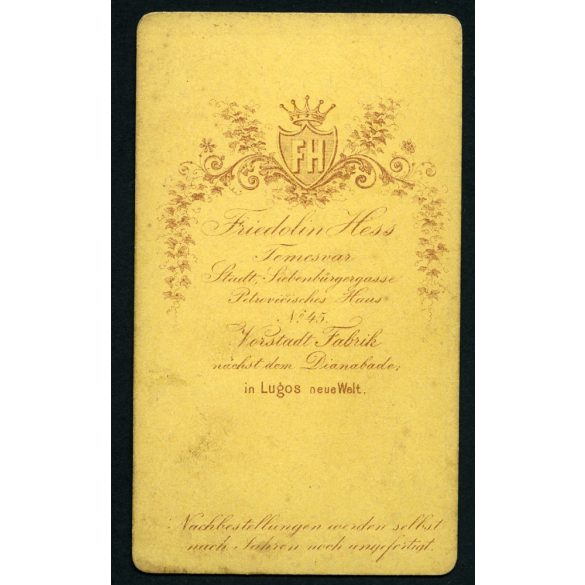 FH
Friedolin Hess
Temesvar
Stadt, Siebenbürgergasse
Petrovicisches Haus
No 45.
Vorstadt Fabrik
nächst dem Dianabade;
in Lugos neue Welt.
Nachbestellungen werden selbst
nach Jahren noch angefertigt.